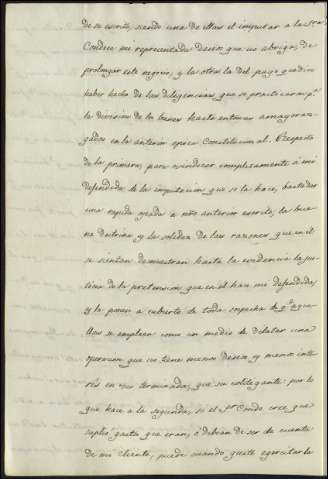 de su escrito, siendo una de ellas el imputar a la Sra
Condesa mi representada deseos que no abriga, de
prolongar este negocio, y la otra la del pago que dice
haber hecho de las diligencias que se practicaron pa
la division de los bienes hasta entonces amayoraz-
gados en la anterior epoca Constitucional. Respecto
de la primera, para vindicar completamente á mi
defendida de la imputacion que se la hace, bastada
una rapida ojeada a nro anterior escrito, la bue-
na doctrina y la solidez de las razones que en el
se sientan demuestran hasta la evidencia la jus-
ticia de la pretension que en el hace mi defendida,
y la ponen a cubierto de toda sospecha de qe aque-
llas se empleen como un medio de dilatar una
operacion que no tiene menos deseos y menos inte-
rés en ver terminada, que su colitigante: por lo
que hace a la segunda, si el Sr Conde cree que
suplió gastos que eran, ó debian de ser de cuenta
de mi cliente, puede cuando guste egercitar la